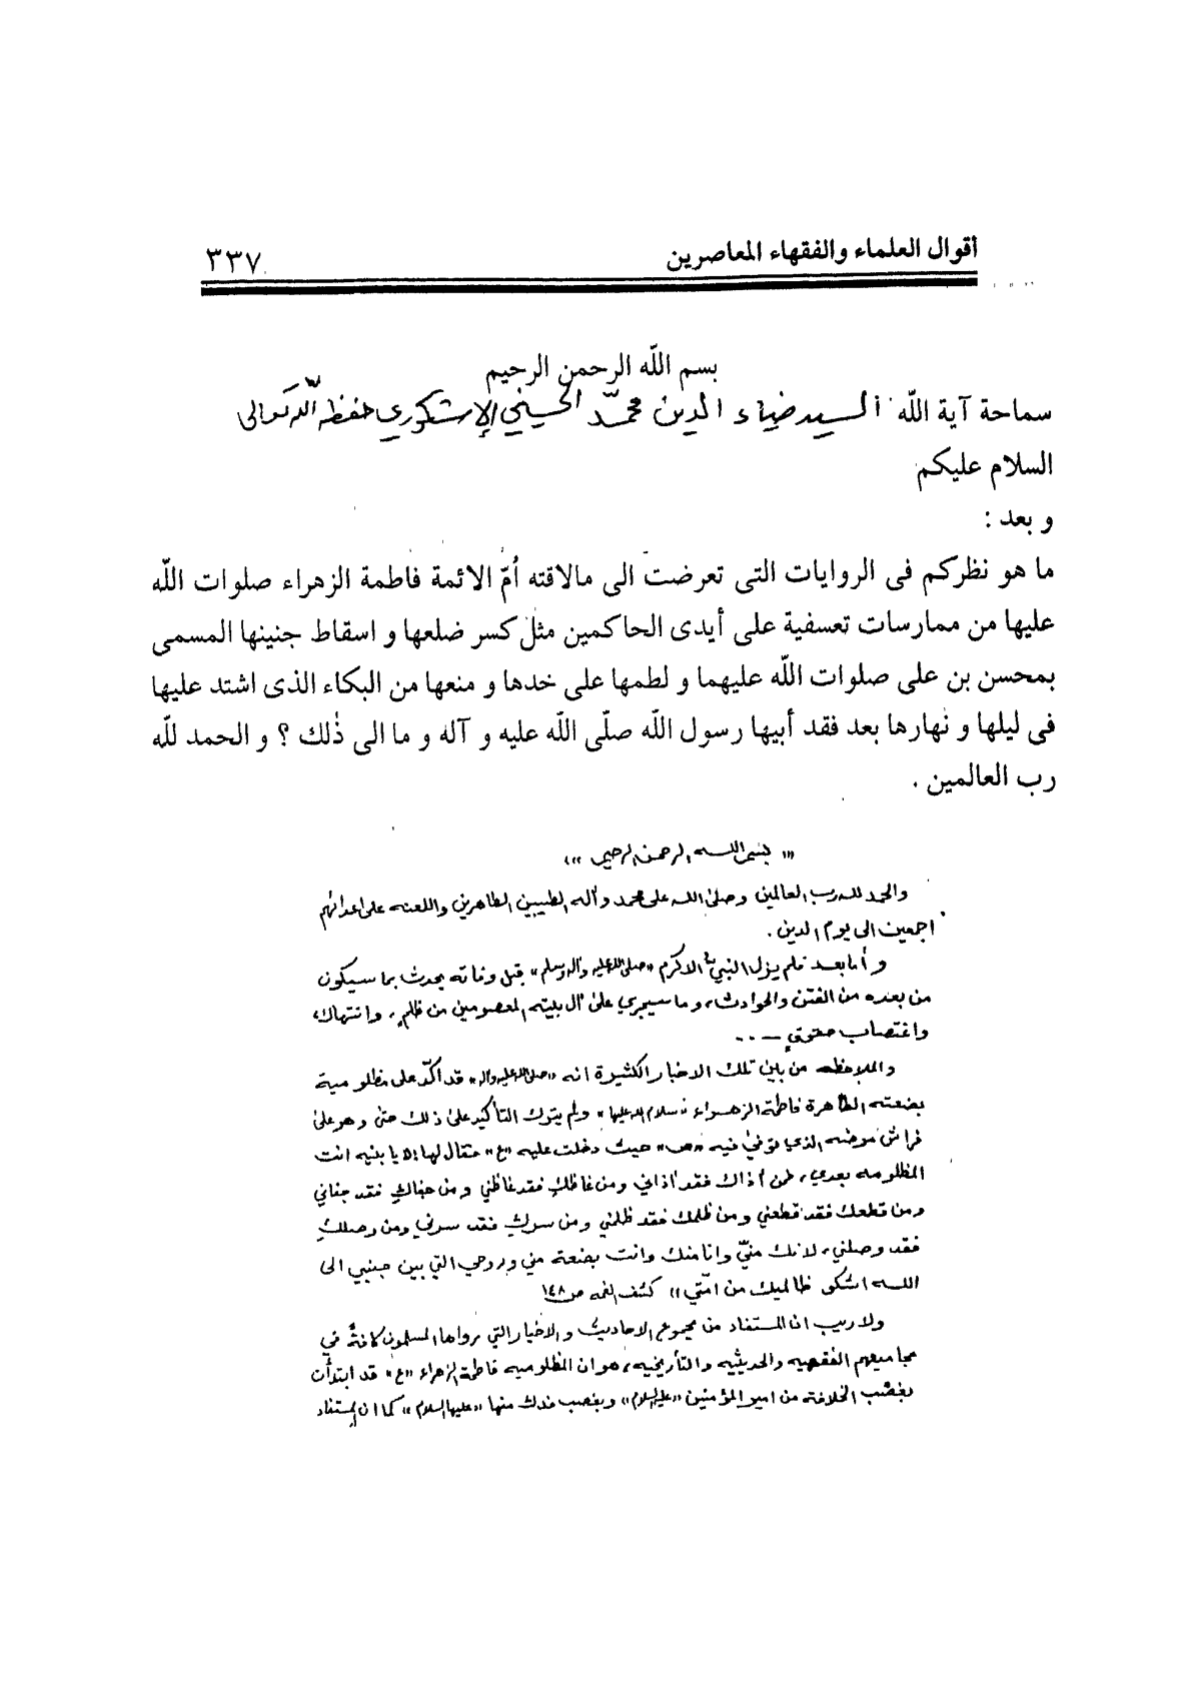 أقوال العلماء والفقهاء المعاصرين ٣٣٧
بسم اللّه الرحمن الرحيم
سماحة آية اللّه السيد ضياء الدين محمّد الحسيني الإشكوري حفظه اللّه تعالى
السلام عليكم
و بعد :
ما هو نظركم فى الروايات التى تعرضت الى مالاقته أمّ الائمة فاطمة الزهراء صلوات اللّه
عليها من ممارسات تعسفية على أيدى الحاكمين مثل كسر ضلعها و اسقاط جنينها المسمى
بمحسن بن على صلوات اللّه عليهما و لطمها على خدها و منعها من البكاء الذى اشتد عليها
فى ليلها و نهارها بعد فقد أبيها رسول اللّه صلّى اللّه عليه و آله و ما الى ذٰلك ؟ و الحمد للّه
رب العالمين .
«« بسم اللـه الرحمن الرحيم »»
والحمد للـه رب العالمين وصلىٰ اللـه على محمد وآله الطيبين الطاهرين واللعنه على اعدائهم
اجمعين الى يوم الدين .
وأما بعد فلم يزل النبي الاكرم «صلى الله عليه وآله وسلم» قبل وفاته يحدث بما سيكون
من بعده من الفتن والحوادث، وما سيجري علىٰ آل بيته المعصومين من ظلمٍ، وانتهاك،
واغتصاب حقوقٍ ـ ...
والملاحظه من بين تلك الاخبار الكثيرة انه «صلى الله عليه وآله» قد اكّد على مظلومية
بضعته الطاهرة فاطمة الزهـراء «سلام الله عليها» ولم يترك التأكيد علىٰ ذلك حتىٰ وهو علىٰ
فراش مرضه الذي توفيٰ فيه «ص» حيث دخلت عليه «ع» فقال لها: «يا بنيه انت
المظلومه بعدي، فمن آذاك فقد آذاني ومن غاظكِ فقد غاظني ومن جفاكِ فقد جفاني
ومن قطعك فقد قطعني ومن ظلمك فقد ظلمني ومن سركِ فقد سرني ومن وصلكِ
فقد وصلني، لانك منيّ وانا منك وانت بضعة مني وروحي التي بين جنبي الى
اللـه اشكو ظالميك من امّتي» كشف الغمه ص١٤٨
ولا ريب ان المستفاد من مجموع الاحاديث والاخبار التي رواها المسلمون كافةً في
مجاميعهم الفقهيه والحديثيه والتأريخيه، هو ان المظلوميه فاطمة الزهراء «ع» قد ابتدأت
بغصب الخلافة من امير المؤمنين «عليه السلام» وبغصب فدك منها «عليها السلام» كما ان المستفاد